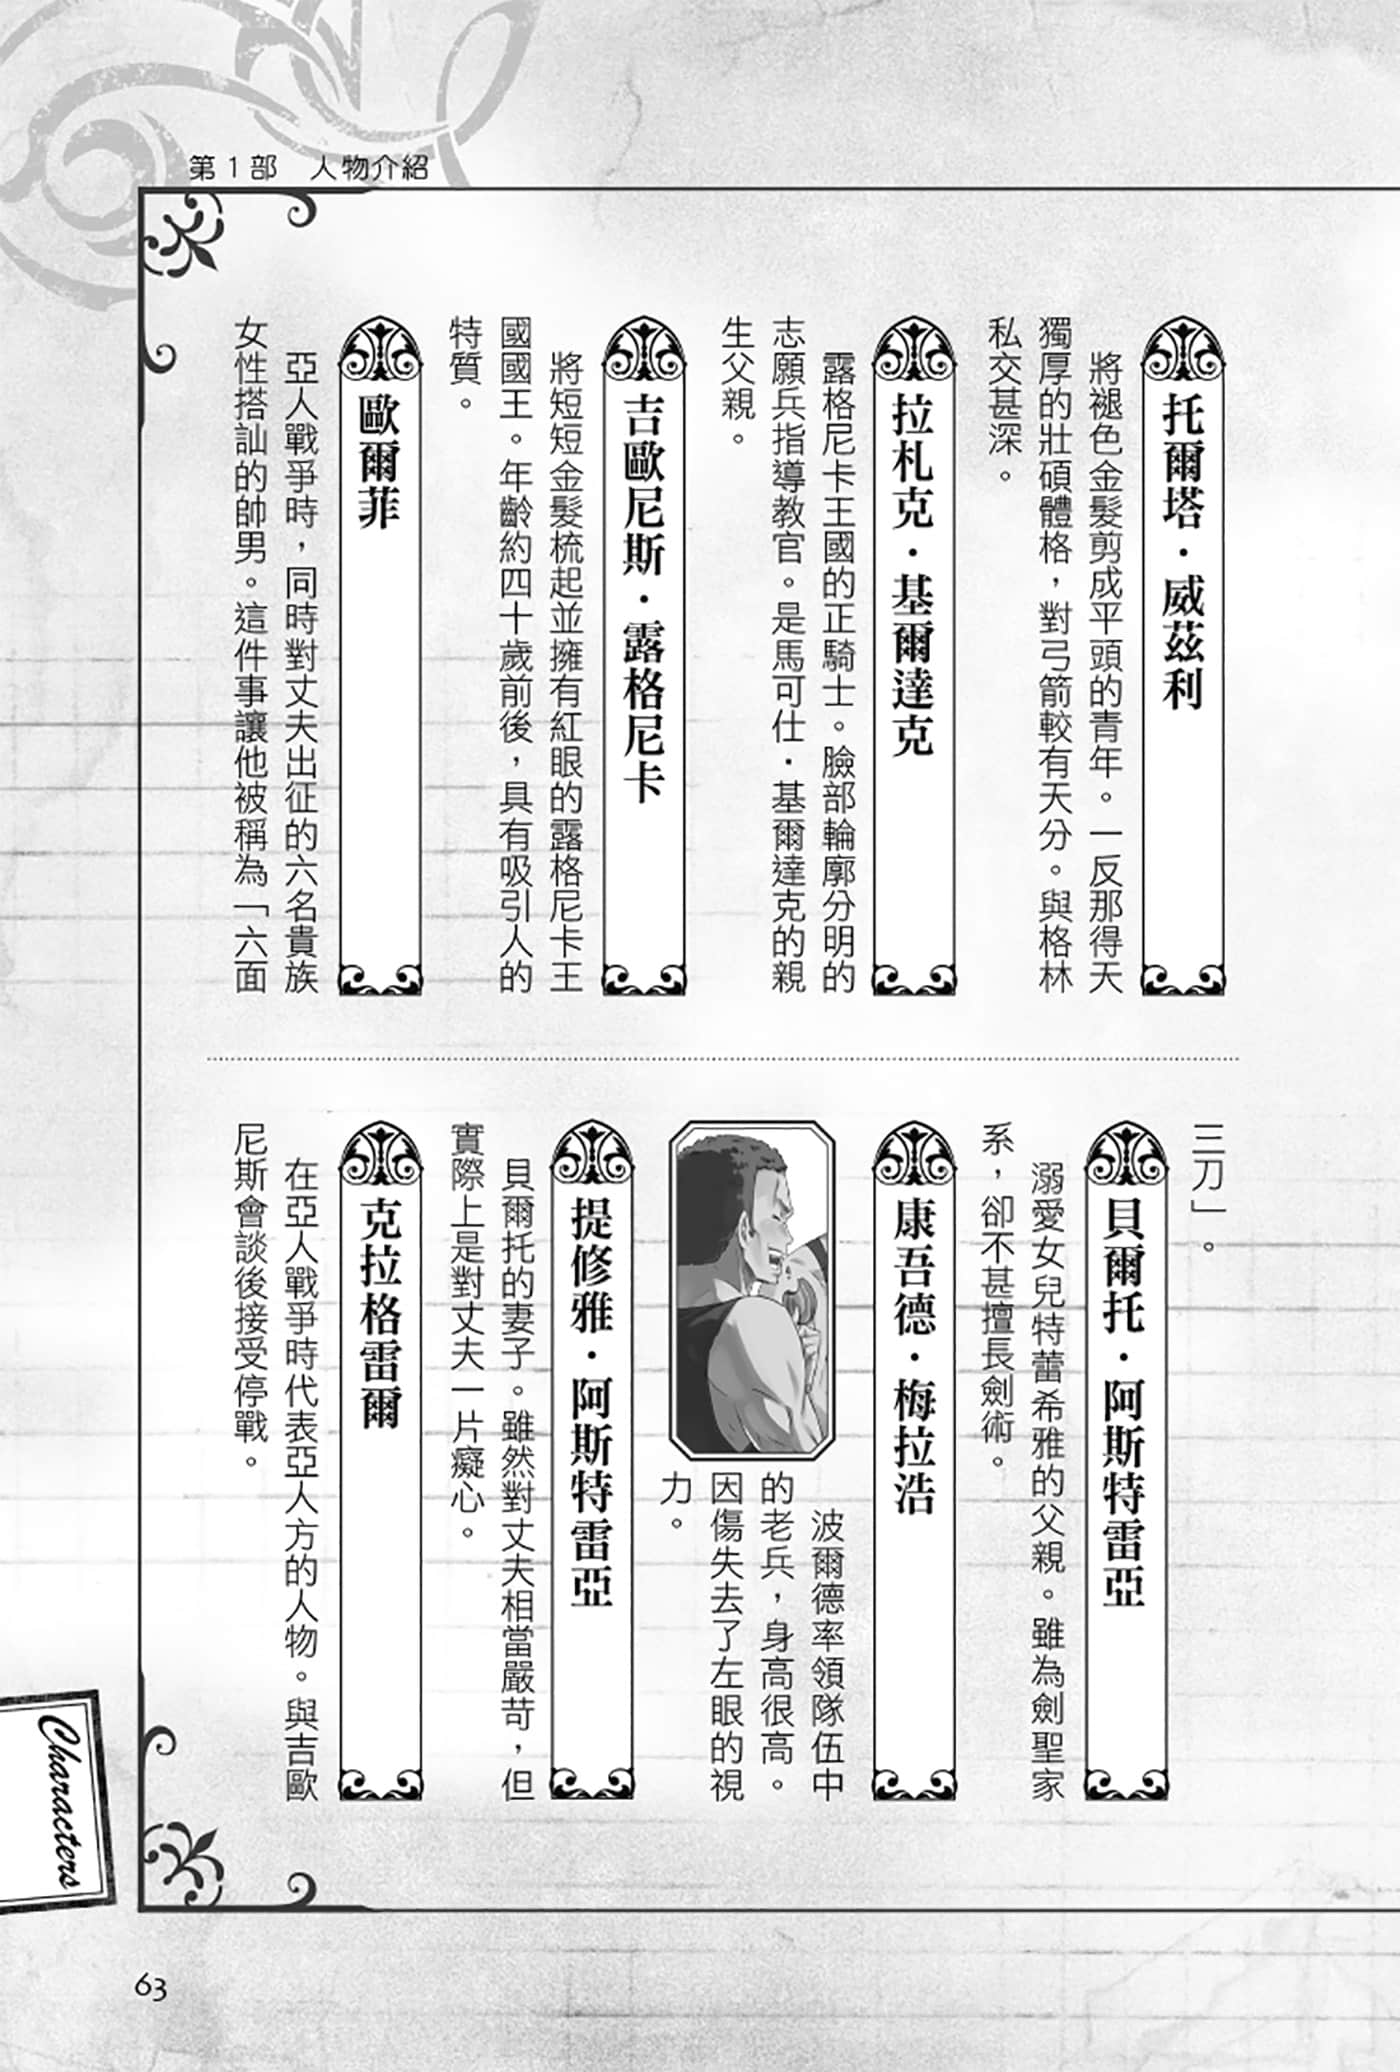 第1部　人物介紹
托爾塔·威茲利
將褪色金髮剪成平頭的青年。一反那得天
獨厚的壯碩體格，對弓箭較有天分。與格林
私交甚深。
拉札克·基爾達克
露格尼卡王國的正騎士。臉部輪廓分明的
志願兵指導教官。是馬可仕·基爾達克的親
生父親。
吉歐尼斯·露格尼卡
將短短金髮梳起並擁有紅眼的露格尼卡王
國國王。年齡約四十歲前後，具有吸引人的
特質。
歐爾菲
亞人戰爭時，同時對丈夫出征的六名貴族
女性搭訕的帥男。這件事讓他被稱為「六面
三刀」。
貝爾托·阿斯特雷亞
溺愛女兒特蕾希雅的父親。雖為劍聖家
系，卻不甚擅長劍術。
康吾德·梅拉浩
波爾德率領隊伍中
的老兵，身高很高。
因傷失去了左眼的視
力。
提修雅·阿斯特雷亞
貝爾托的妻子。雖然對丈夫相當嚴苛，但
實際上是對丈夫一片癡心。
克拉格雷爾
在亞人戰爭時代表亞人方的人物。與吉歐
尼斯會談後接受停戰。
Characters
63